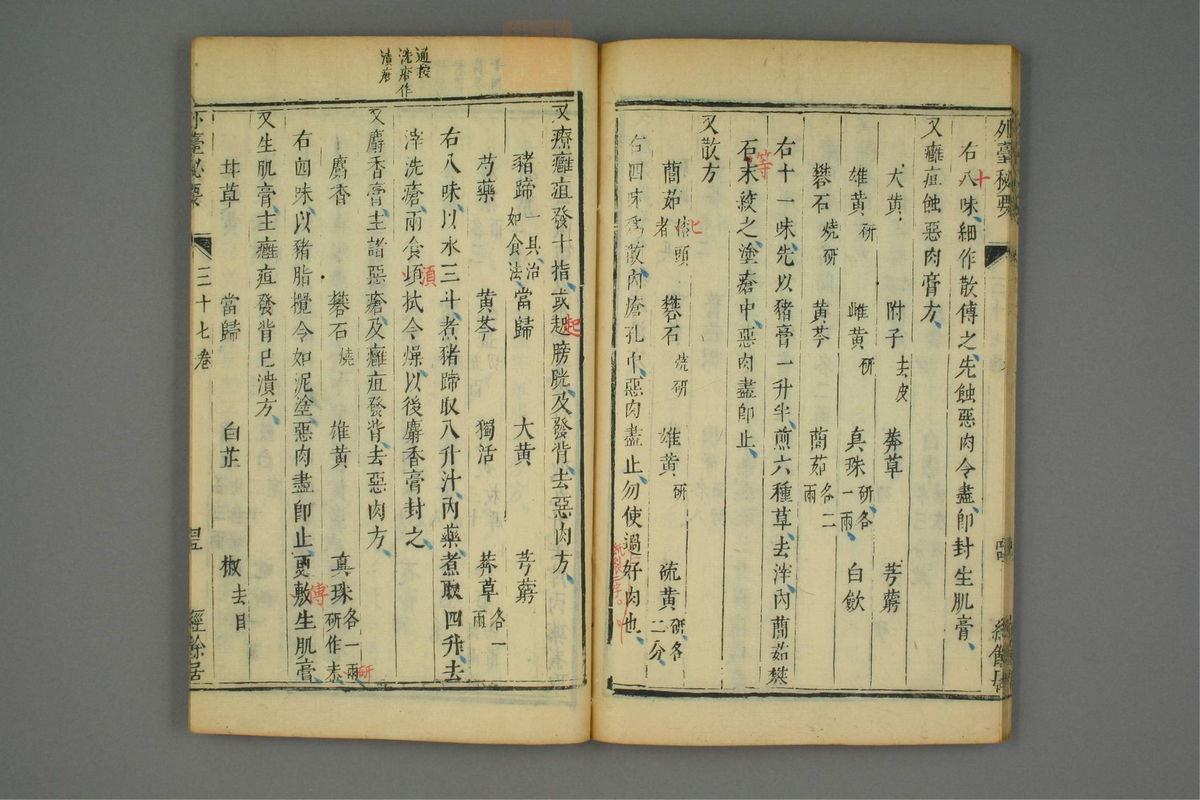 外臺秘要
右八味細作散傅之先蝕惡肉令盡卽封生肌膏
十
又癰疽蝕惡肉膏方
大黃 附子去皮 莽草 芎藭
雄黃研 雌黃研 真珠研各一兩 白歛
礬石燒研 黃芩 䕡茹各二兩
右十一味先以猪膏一升半煎六種草去滓內䕡茹礬
石末絞之塗瘡中惡肉盡卽止
等
又散方
䕡茹漆頭者 礬石燒研 雄黃研 硫黃研各二分
七
右四味爲散內瘡孔中惡肉盡止勿使過好肉也
通按洗瘡作漬瘡
又療癰疽發十指或起膀胱及發背去惡肉方
起
豬蹄一具治如食法 當歸 大黃 芎藭
芍藥 黃芩 獨活 莽草各一兩
右八味以水三斗煮豬蹄取八升汁內藥煮取四升去
滓洗瘡兩食頃拭令燥以後麝香膏封之
須
又麝香膏主諸惡瘡及癰疽發背去惡肉方
麝香 礬石燒 雄黃 真珠各一兩研作末
研
右四味以豬脂攪令如泥塗惡肉盡卽止更敷生肌膏
傅
又生肌膏主癰疽發背已潰方
茸草 當歸 白芷 椒去目
外臺秘要 三十七卷 經餘居